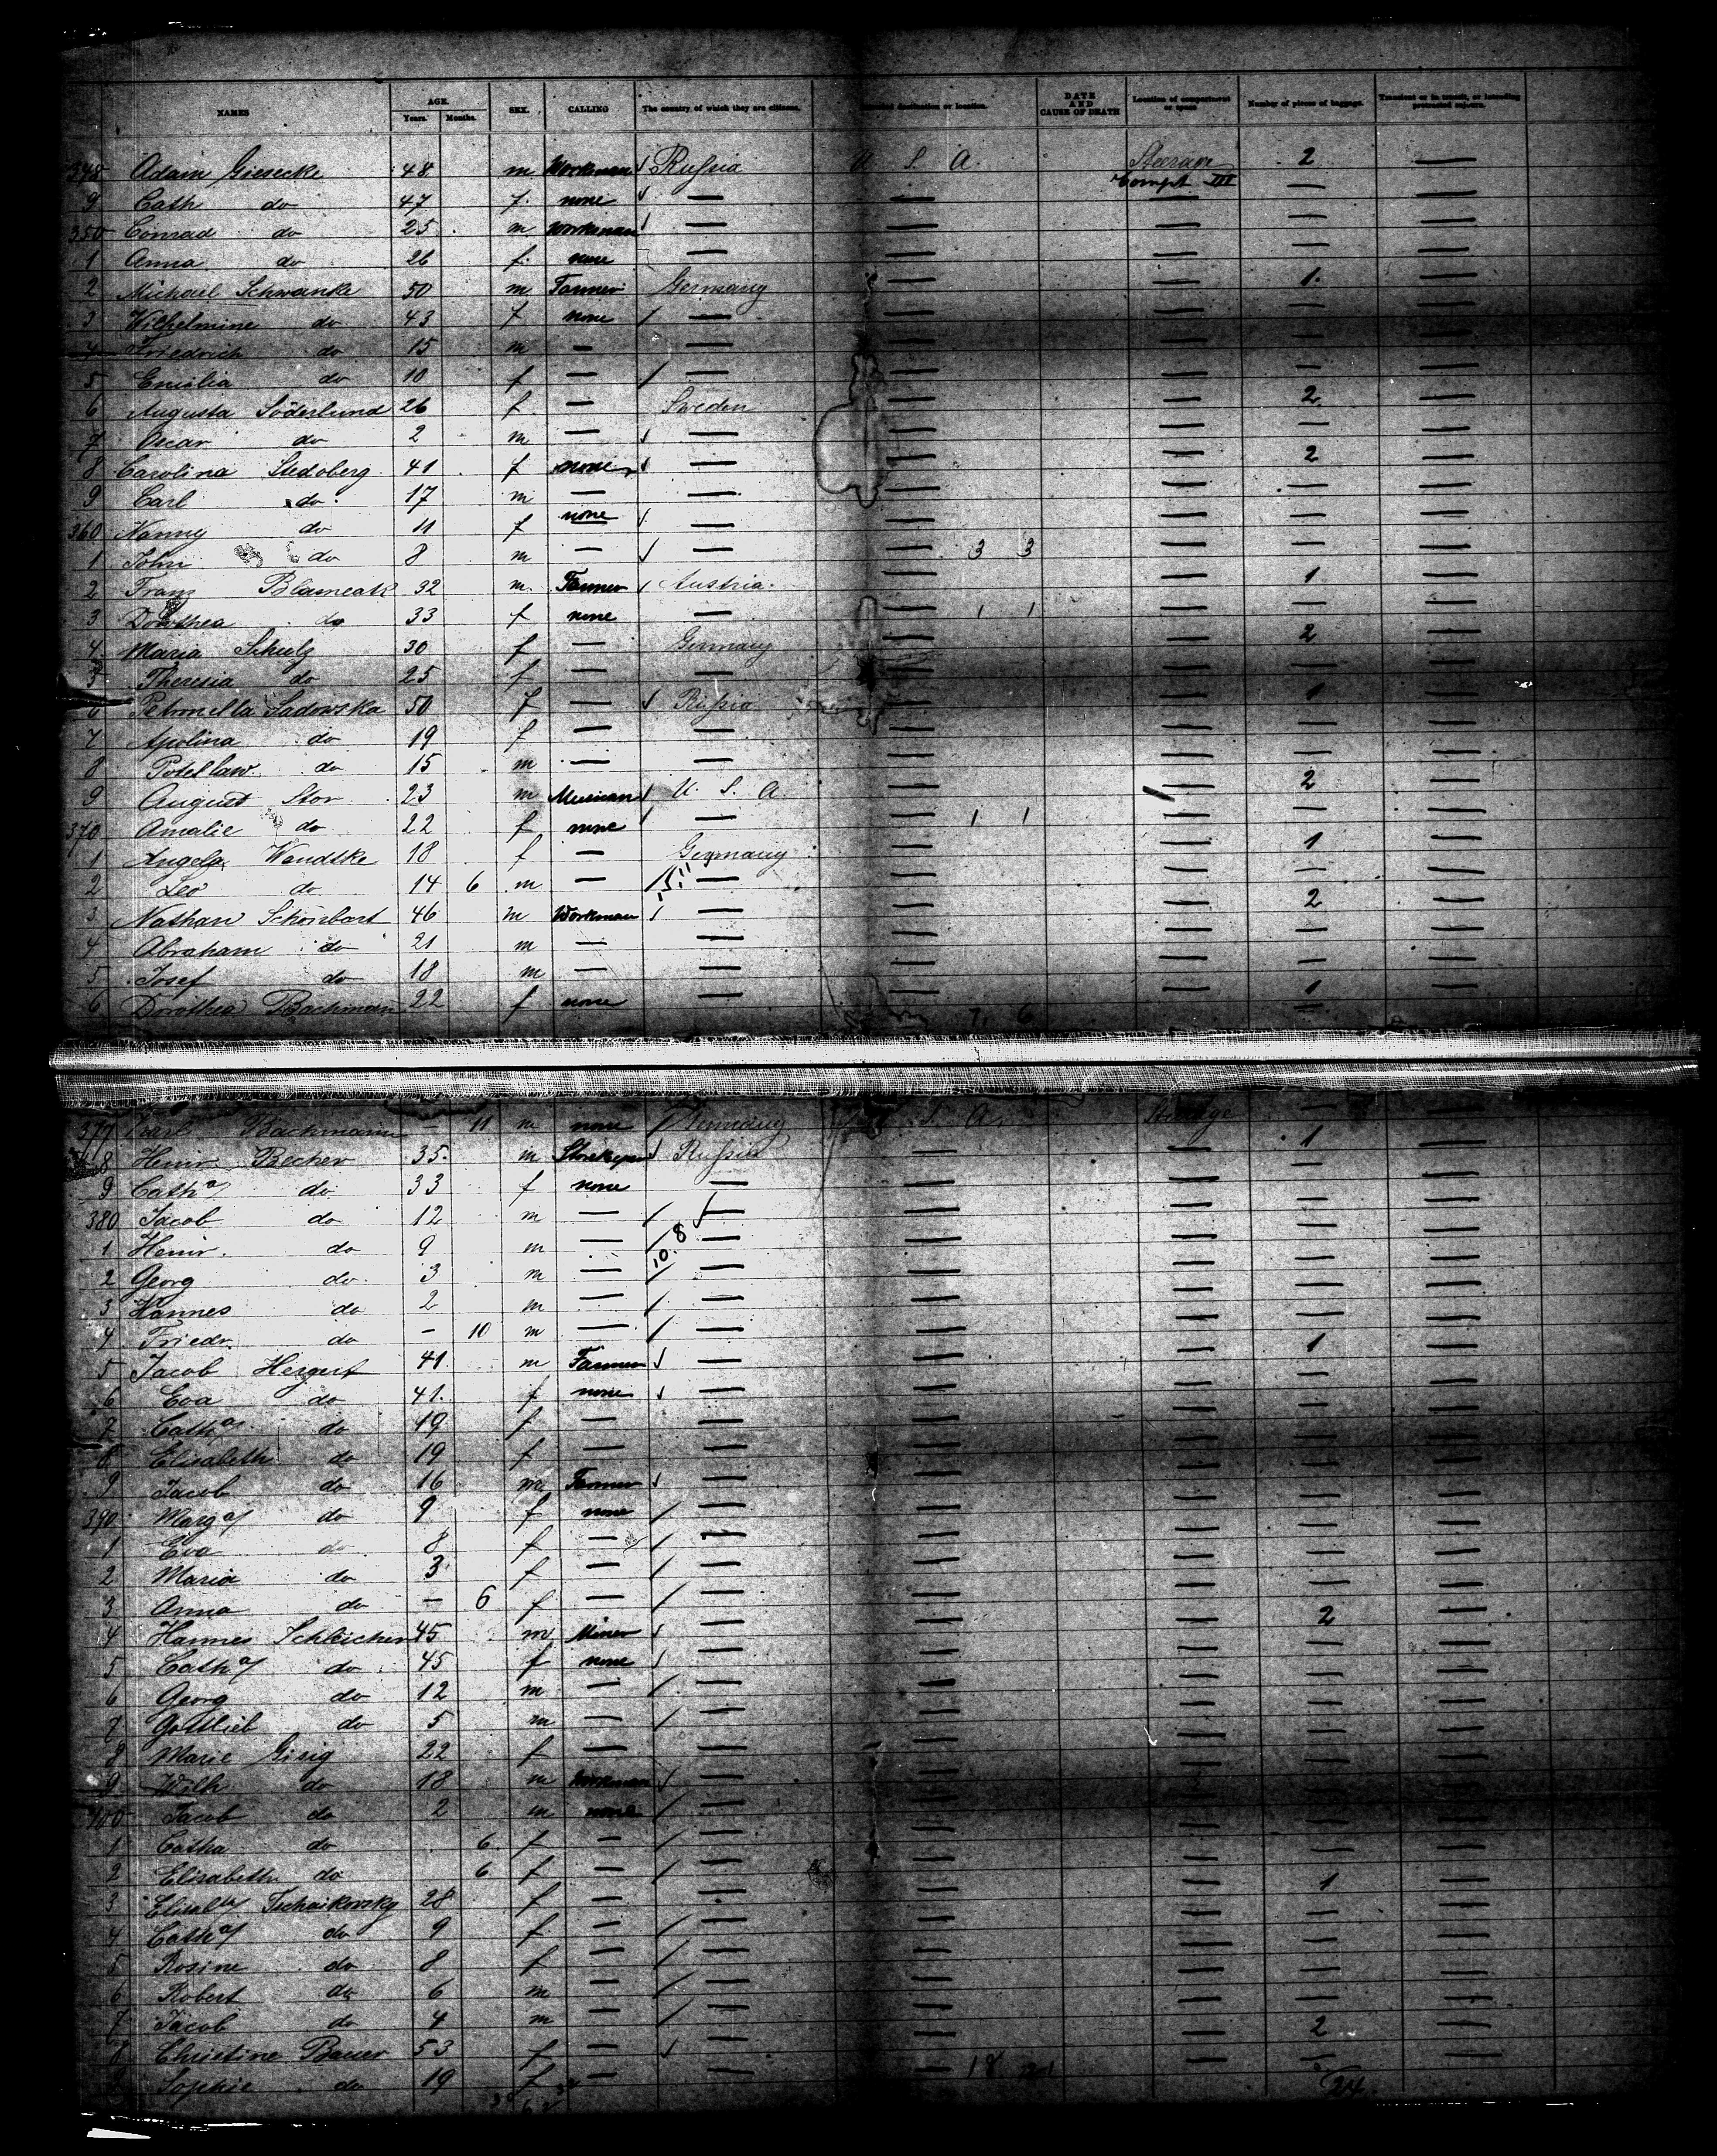 NAMES AGE. Years. Months. SEX. CALLING The country of which they are citizens. destination or location. DATE AND CAUSE OF DEATH Location of compartment or space Number of pieces of baggage. Transient or in transit, or intending protracted sojourn.
348 Adam Giesecke 48 m Workman Rußia U S. A. Steerage 2 —
Compt III
9 Cath do 47 f. none — — — — —
350 Conrad do 25 m workman — — — — —
1 Anna do 26 f. none — — — — —
2 Michael Schwanke 50 m Farmer Germany — — 1. —
3 Wilhelmine do 43 f none — — — — —
4 Friedrich do 15 m — — — — — —
5 Emilia do 10 f — — — — — —
6 Augusta Söderlund 26 f. — Sweden — — 2 —
7 Oscar do 2 m — — — — — —
8 Carolina Stedoberg 41 f none — — — 2 —
9 Carl do 17 m — — — — — —
360 Nanny do 11 f none — — — — —
1 John do 8 m — — — 3 3 — — —
2 Franz 32 m. Farmer Austria — — 1 —
3 Dorothea do 33 f none — — 1 1 — — —
4 Maria Schulz 30 f — Germany — — 2 —
5 Theresia do 25 f — — — — — —
6 Petronella Sadowska 50 f — Rußia — — 1 —
7 Apolina do 19 f — — — — — —
8 do 15 m — — — — — —
9 August Stor 23 m Musician U. S. A. — — 2 —
370 Amalie do 22 f none — — 1 1 — — —
1 Angela Wandtke 18 f — Germany — — 1 —
2 Leo do 14 6 m — — — — — —
3 Nathan Schönbart 46 m Workman — — — 2 —
4 Abraham do 21 m — — — — — —
5 Josef do 18 m — — — — — —
6 Dorothea Bachmann 22 f none — — — 1 —
7 6
377 Carl Bachmann — 11 m none Germany S. A. Steerage — —
8 Heinr. Becher 35 m Storekeeper Rußia — — 1 —
9 Cath a/ do 33 f none — — — — —
380 Jacob do 12 m — — — — — —
1 Heinr. do 9 m — — — — — —
2 Georg do 3 m — — — — — —
3 Hannes do 2 m — — — — — —
4 Friedr. do — 10 m — — — — — —
5 Jacob Hergert 41 m Farmer — — — 1 —
6 Eva do 41. f none — — — — —
7 Cath a/ do 19 f — — — — — —
8 Elisabeth do 19 f — — — — — —
9 Jacob do 16 m Farmer — — — — —
390 Marg a/ do 9 f none — — — — —
1 Eva do 8 f — — — — — —
2 Maria do 3 f — — — — — —
3 Anna do — 6 f — — — — — —
4 Hannes Schleicher 45 m Miner — — — 2 —
5 Cath a/ do 45 f none — — — — —
6 Georg do 12 m — — — — — —
7 Gottlieb do 5 m — — — — — —
8 Marie Girig 22 f — — — — — —
9 Wilh do 18 m workman — — — — —
400 Jacob do 2 m none — — — — —
1 Catha do 6 f — — — — — —
2 Elisabeth do 6 f — — — — — —
3 Elisabth/ Tschaikovsky 28 f — — — — 1 —
4 Cath a/ do 9 f. — — — — — —
5 Rosine do 8 f — — — — — —
6 Robert do 6 m — — — — — —
7 Jacob do 4 m — — — — — —
8 Christine Bauer 53 f — — — — 2 —
9 Sophie do 19 f — — — 18 — — —
24